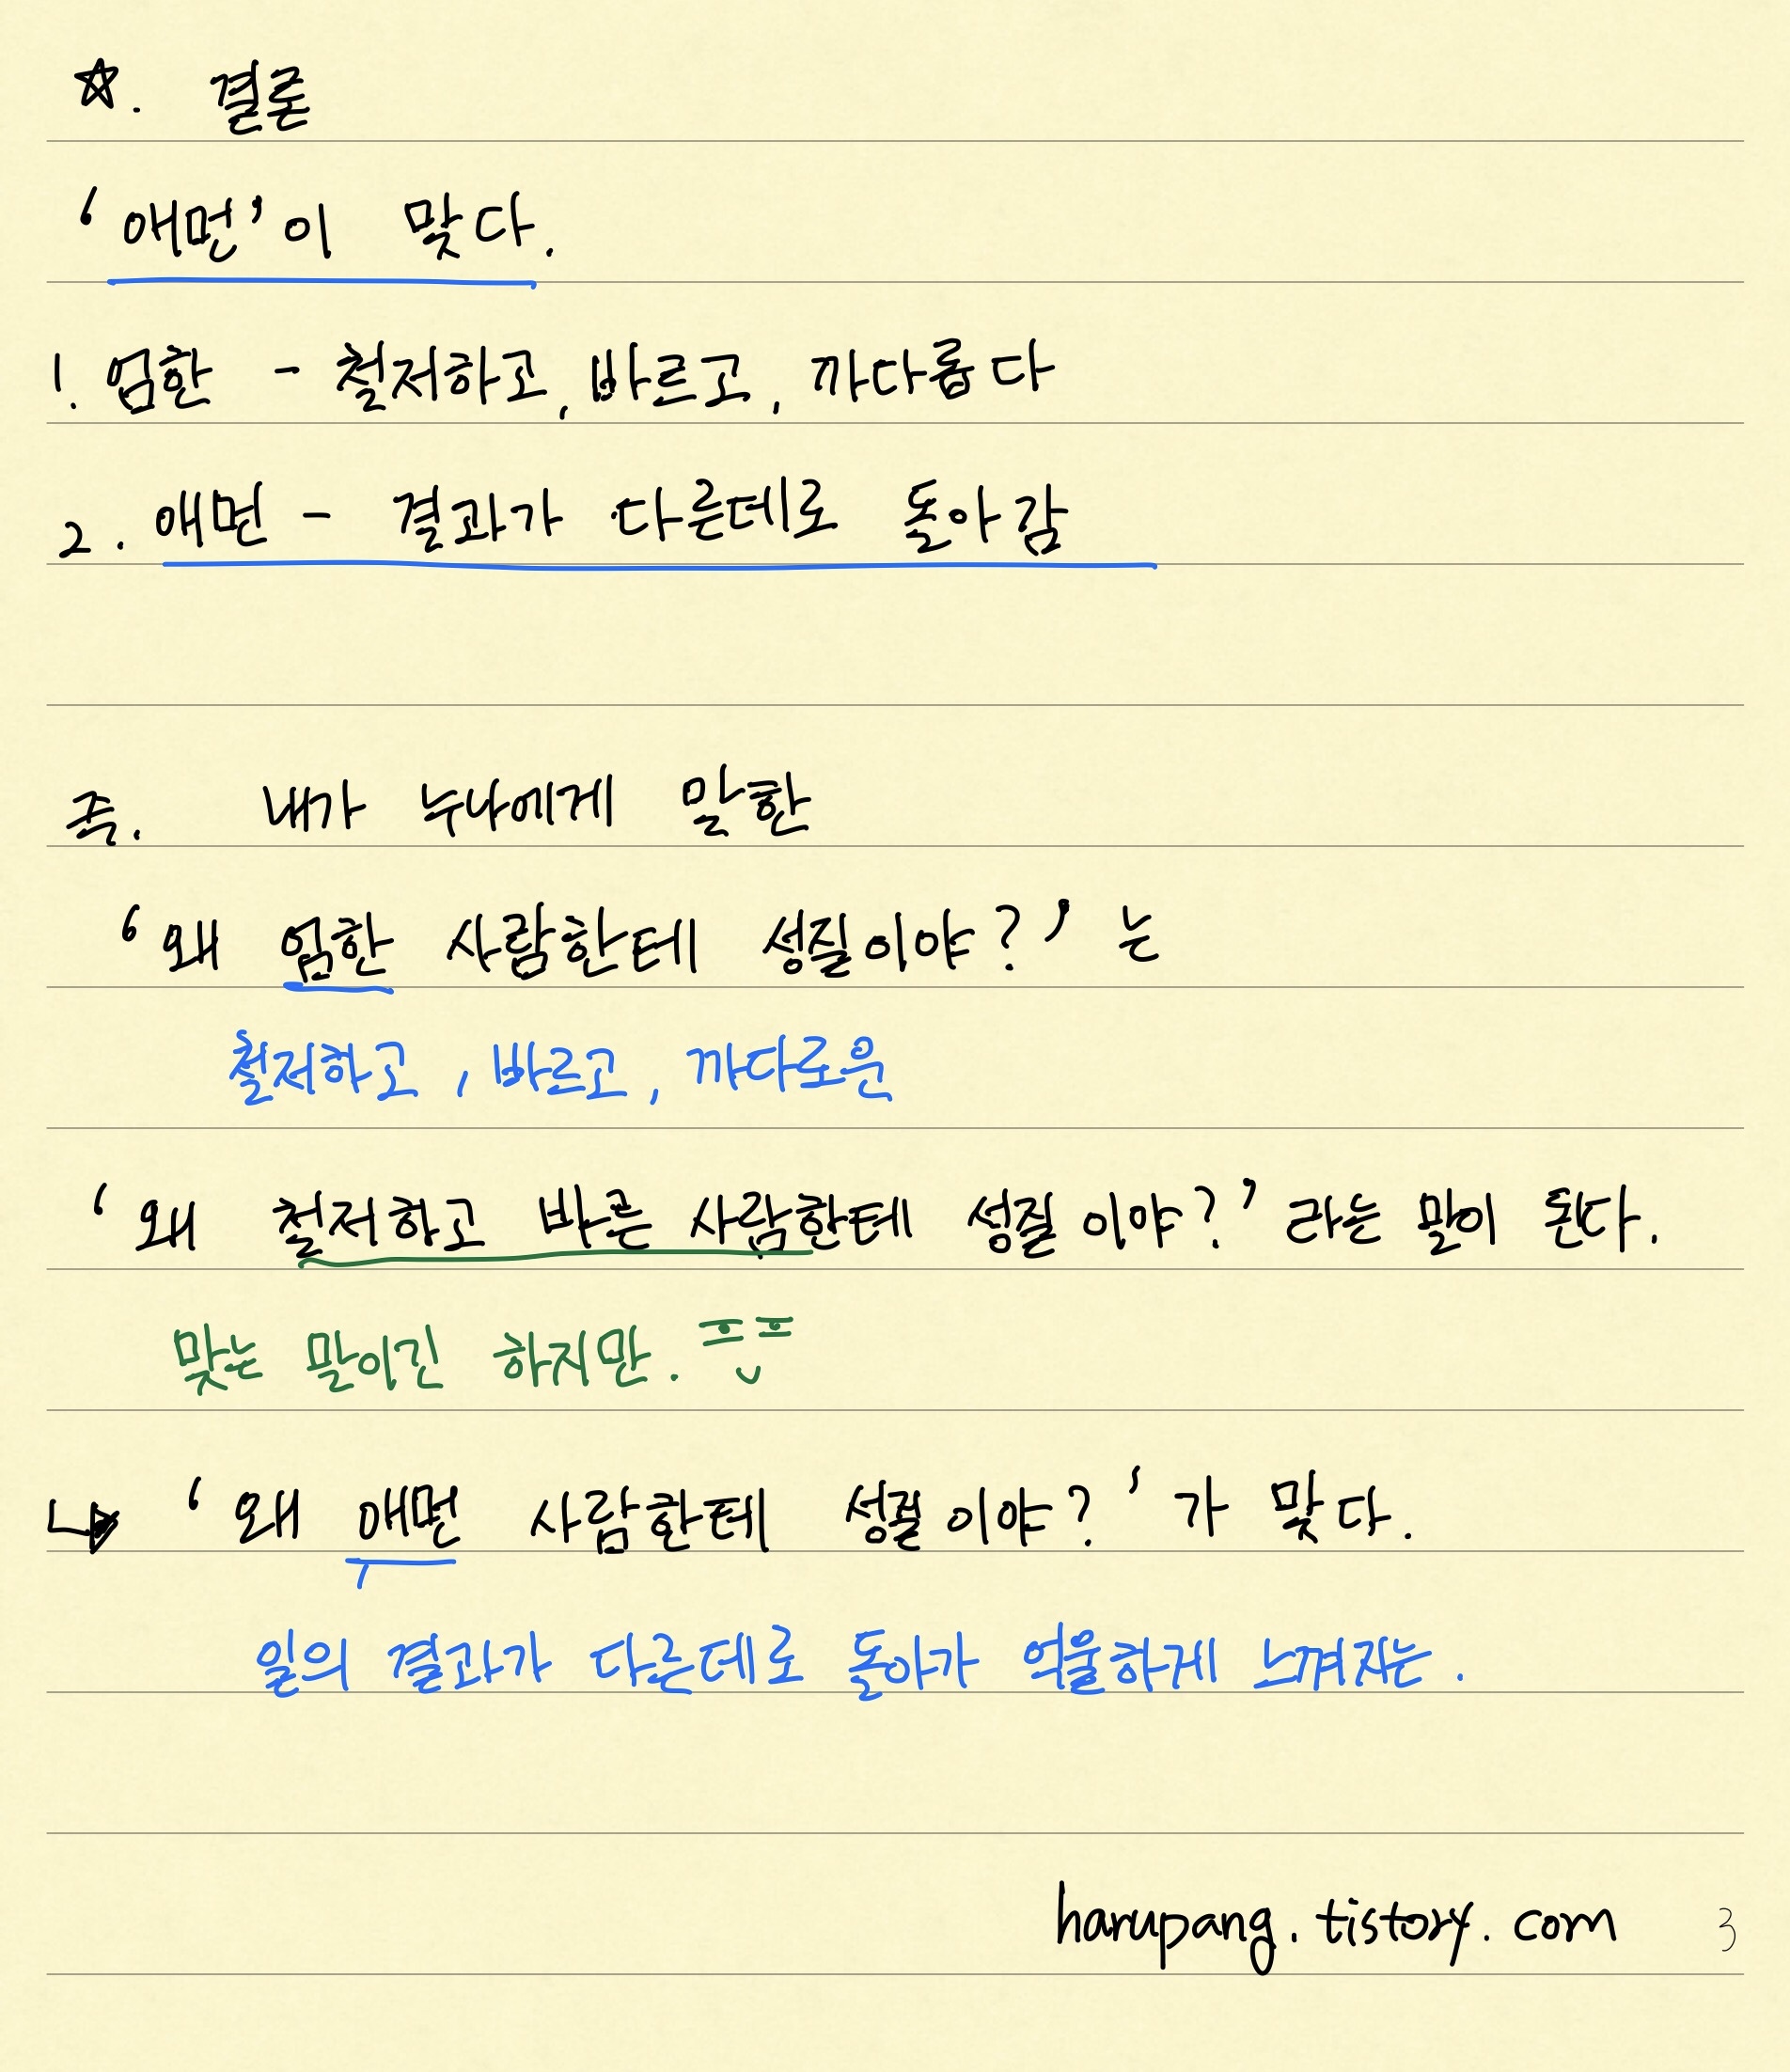 ☆. 결론
'애먼'이 맞다.
1. 엄한 - 철저하고, 바르고, 까다롭다
2. 애먼 - 결과가 다른데로 돌아감
즉. 내가 누나에게 말한
'왜 엄한 사람한테 성질이야?' 는
철저하고, 바르고, 까다로운
'왜 철저하고 바른 사람한테 성질이야?' 라는 말이 된다.
맞는 말이긴 하지만.
↳ '왜 애먼 사람한테 성질이야?' 가 맞다.
일의 결과가 다른데로 돌아가 억울하게 느껴지는.
harupang.tistory.com 3